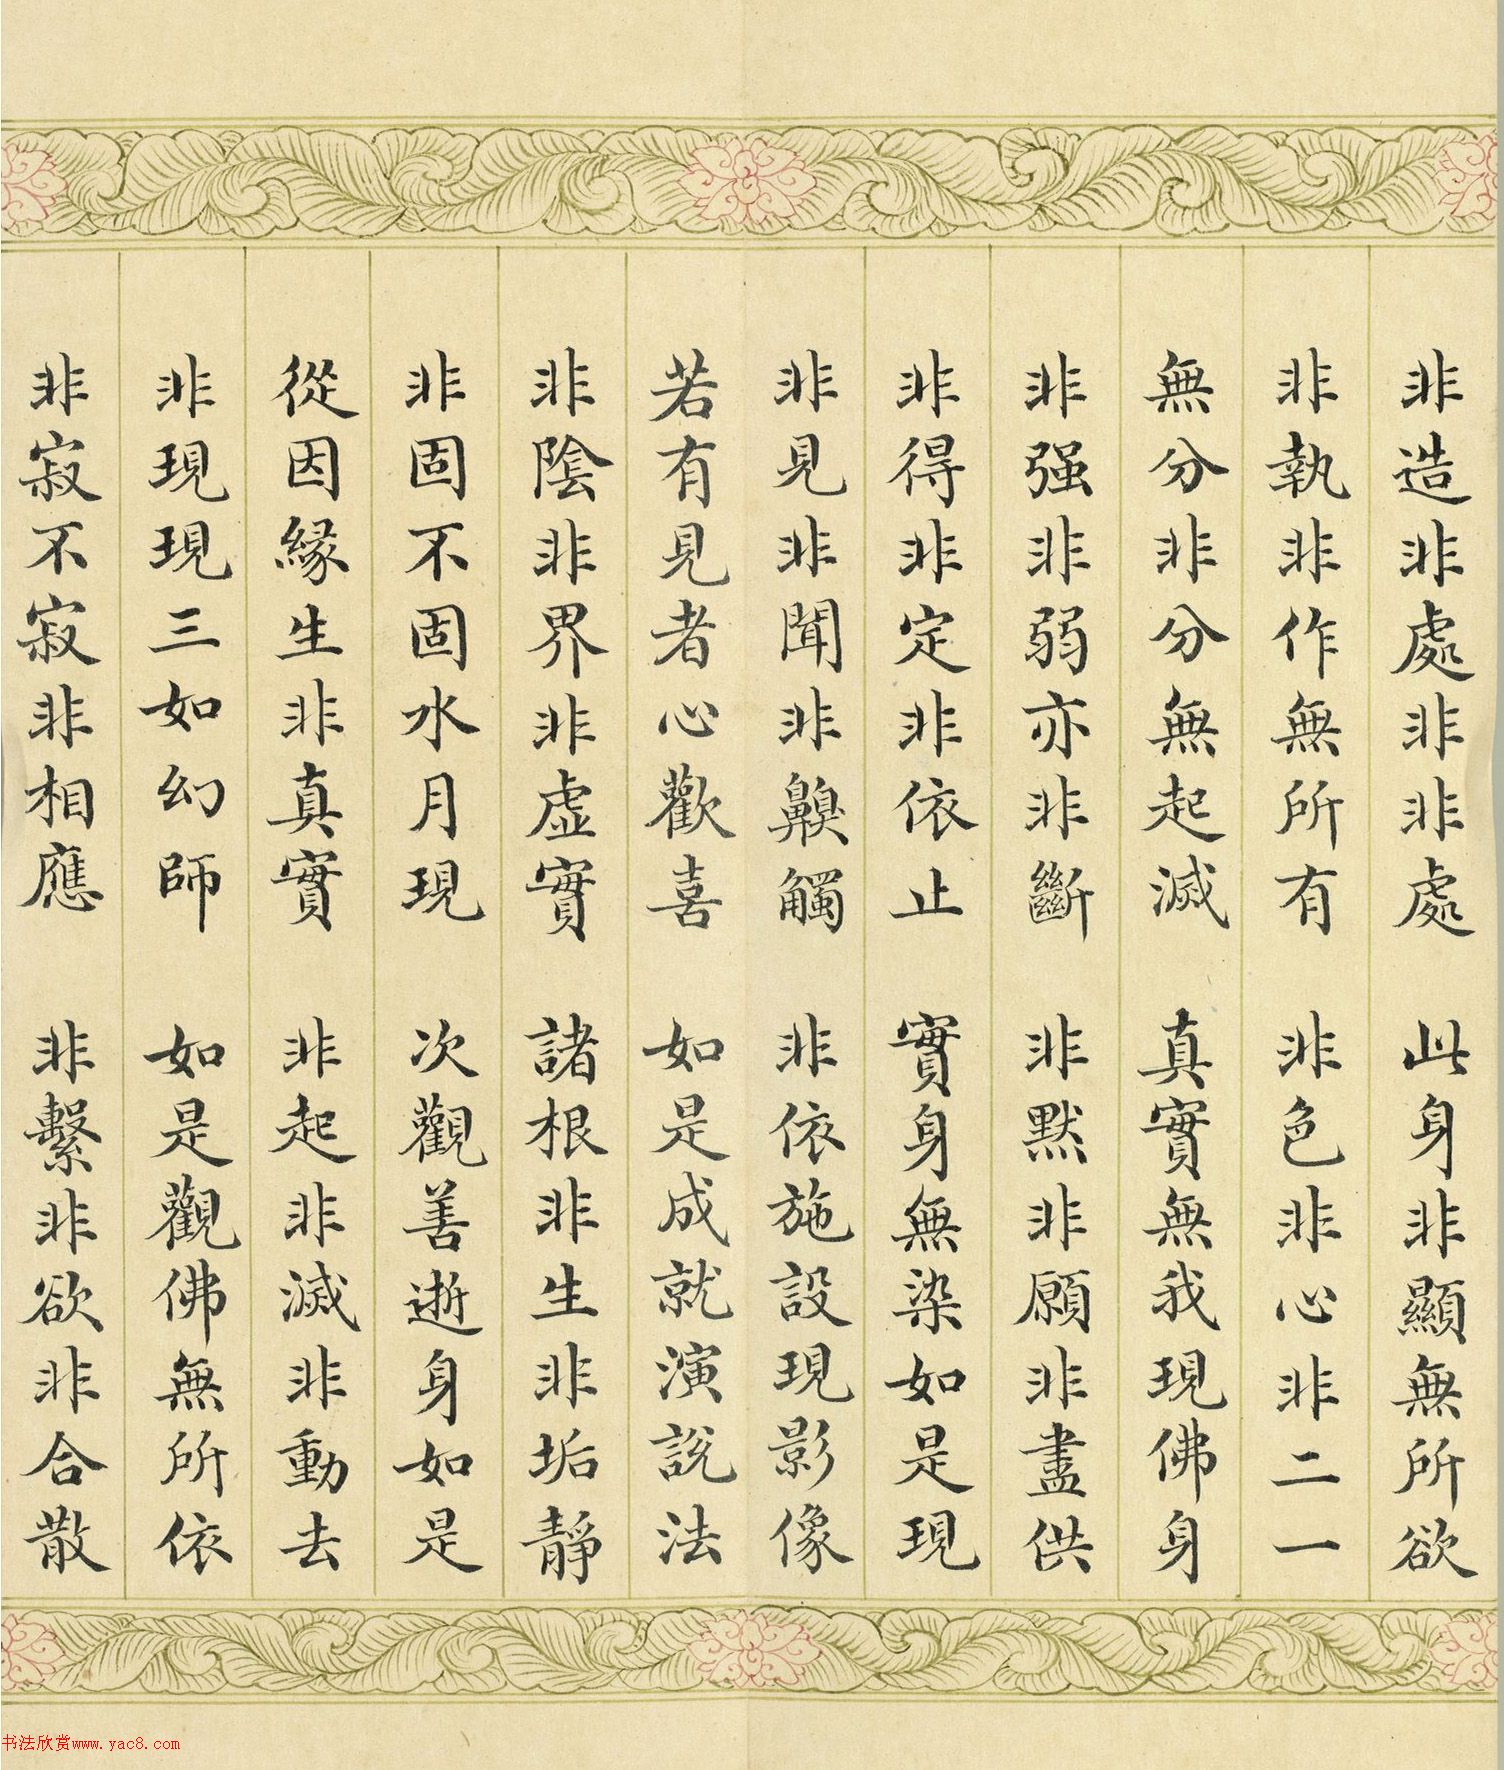 非造非處非非處　此身非顯無所欲
非執非作無所有　非色非心非二一
無分非分無起滅　真實無我現佛身
非强非弱亦非斷　非默非願非盡供
非得非定非依止　實身無染如是現
非見非聞非齅觸　非依施設現影像
若有見者心歡喜　如是成就演説法
非陰非界非虛實　諸根非生非垢靜
非固不固水月現　次觀善逝身如是
從因緣生非真實　非起非滅非動去
非現現三如幻師　如是觀佛無所依
非寂不寂非相應　非繫非欲非合散
书法欣赏www.yac8.com